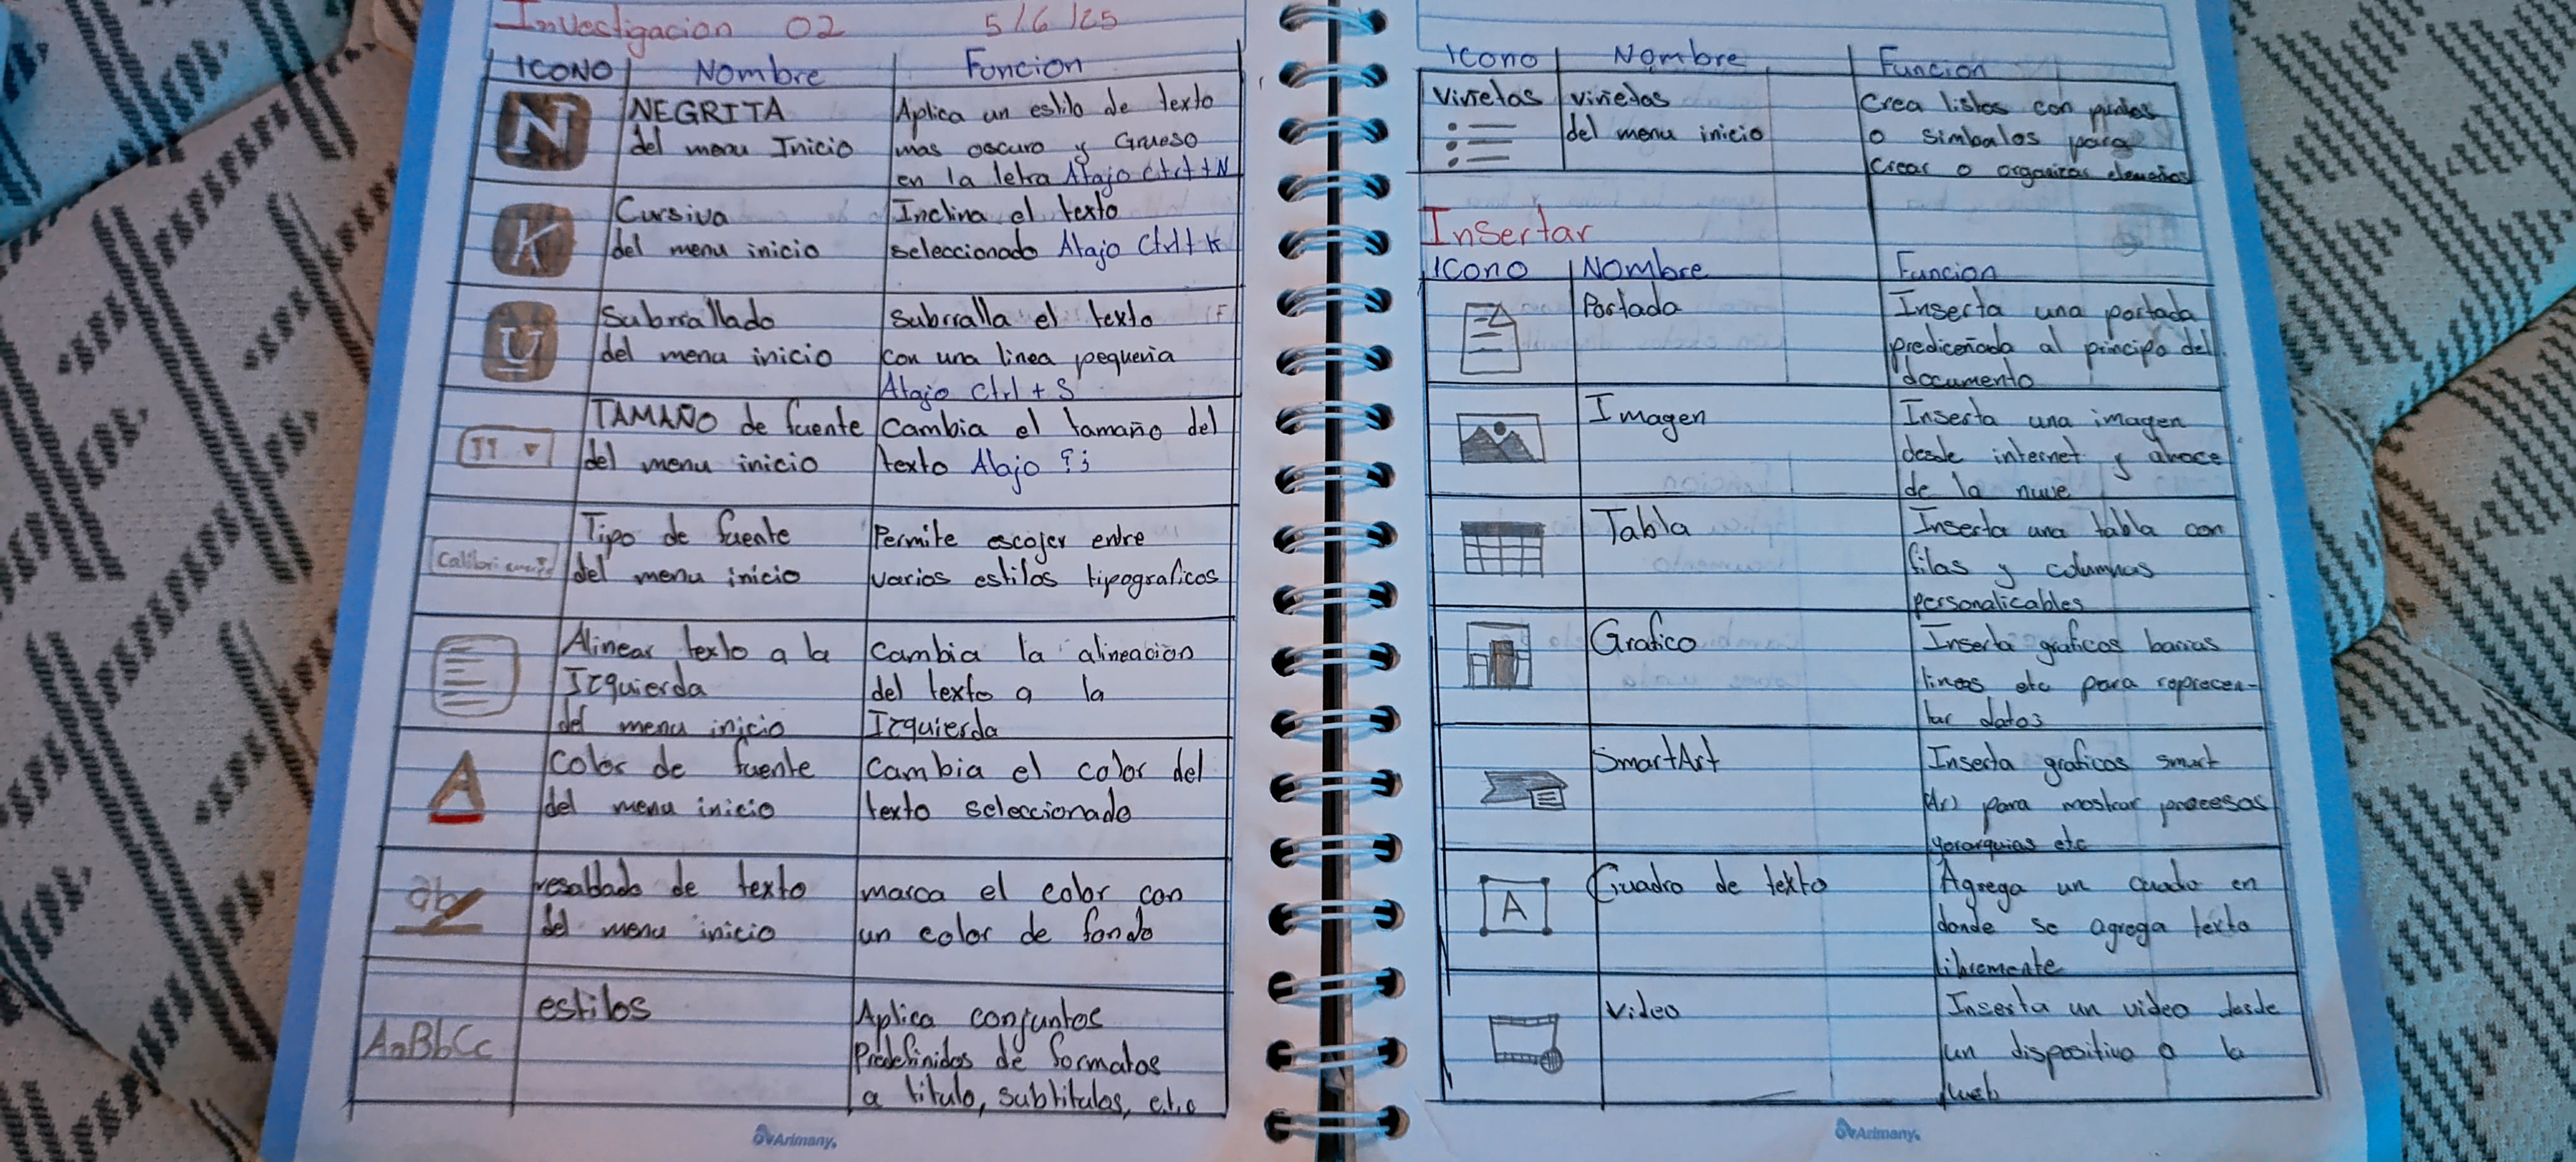 Investigacion 02 5/6/25
ICONO Nombre Funcion
N NEGRITA Aplica un estilo de texto
del menu Inicio mas oscuro y Grueso
en la letra Atajo Ctrl + N
K Cursiva Inclina el texto
del menu inicio seleccionado Atajo Ctrl + K
U Subrrallado Subrralla el texto
del menu inicio con una linea pequeña
Atajo Ctrl + S
11 TAMAÑO de fuente Cambia el tamaño del
del menu inicio texto Atajo
Tipo de fuente Permite escojer entre
Calibri del menu inicio varios estilos tipograficos
Alinear texto a la Cambia la alineacion
Izquierda del texto a la
del menu inicio Izquierda
A Color de fuente Cambia el color del
del menu inicio texto seleccionado
ab resaltado de texto marca el color con
del menu inicio un color de fondo
estilos Aplica conjuntos
AaBbCc Predefinidos de formatos
a titulo, subtitulos, etc
Arimany
Icono Nombre Funcion
Viñetas viñetas Crea listas con puntos
del menu inicio o simbolos para
Crear o organizar elementos
Insertar
Icono Nombre Funcion
Portada Inserta una portada
prediceñada al principo del
documento
Imagen Inserta una imagen
desde internet y
de la nuve
Tabla Inserta una tabla con
filas y columnas
personalicables
Grafico Inserta graficos barras
lineas etc para reprecen-
tar datos
SmartArt Inserta graficos smart
Art para mostrar procesos
yerarquias etc
A Cuadro de texto Agrega un cuadro en
donde se agrega texto
libremente
Video Inserta un video desde
un dispositivo o la
web
Arimany